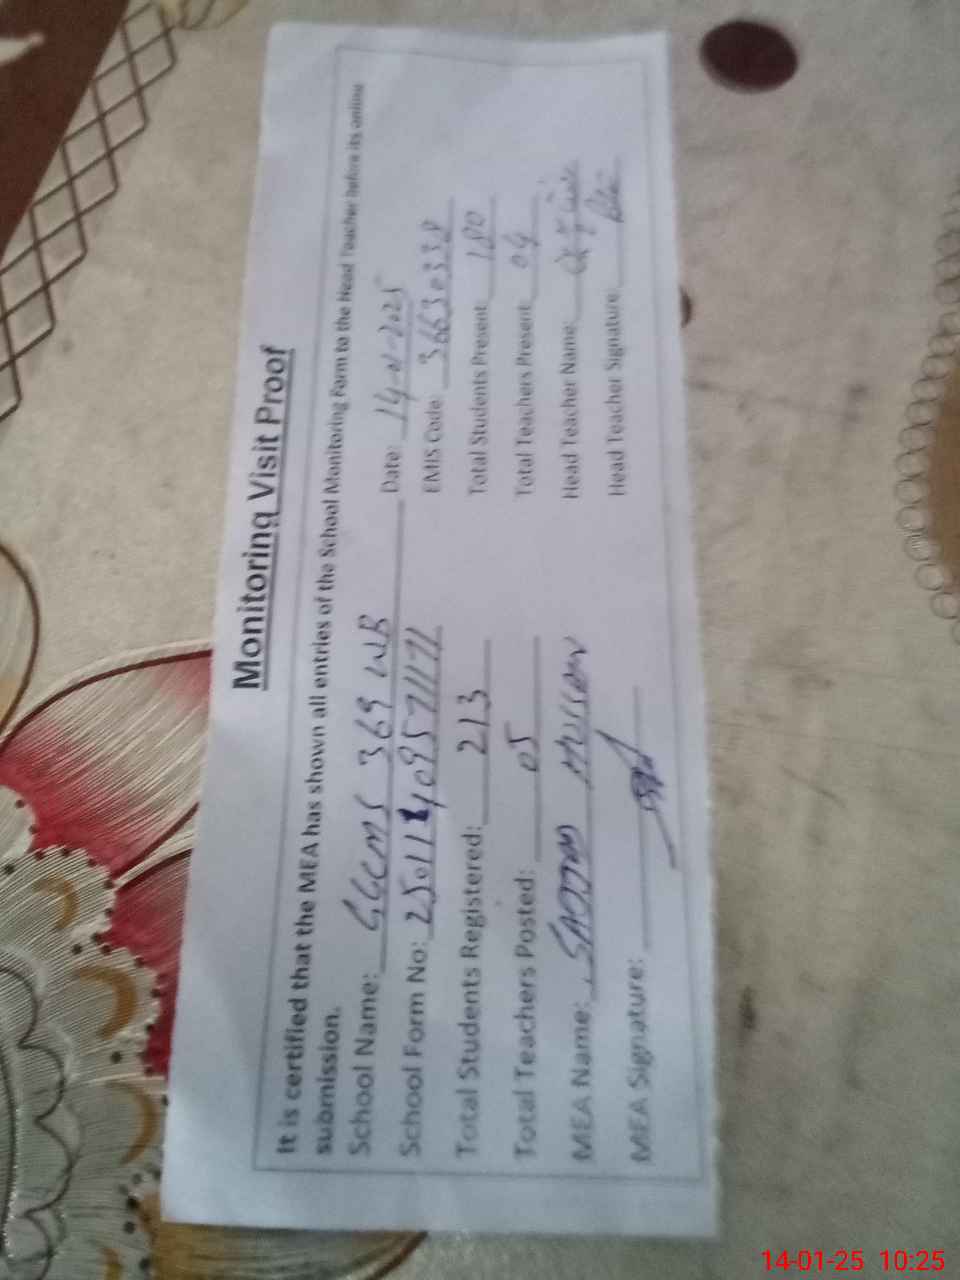 Monitoring Visit Proof
It is certified that the MEA has shown all entries of the School Monitoring Form to the Head Teacher before its online
submission.
School Name: GGCMS 369 WB Date: 14-01-2025
School Form No: EMIS Code: 36630338
Total Students Registered: 213 Total Students Present: 180
Total Teachers Posted: 05 Total Teachers Present: 04
MEA Name: SAJJAD HUSSAIN Head Teacher Name:
MEA Signature: Head Teacher Signature:
14-01-25 10:25